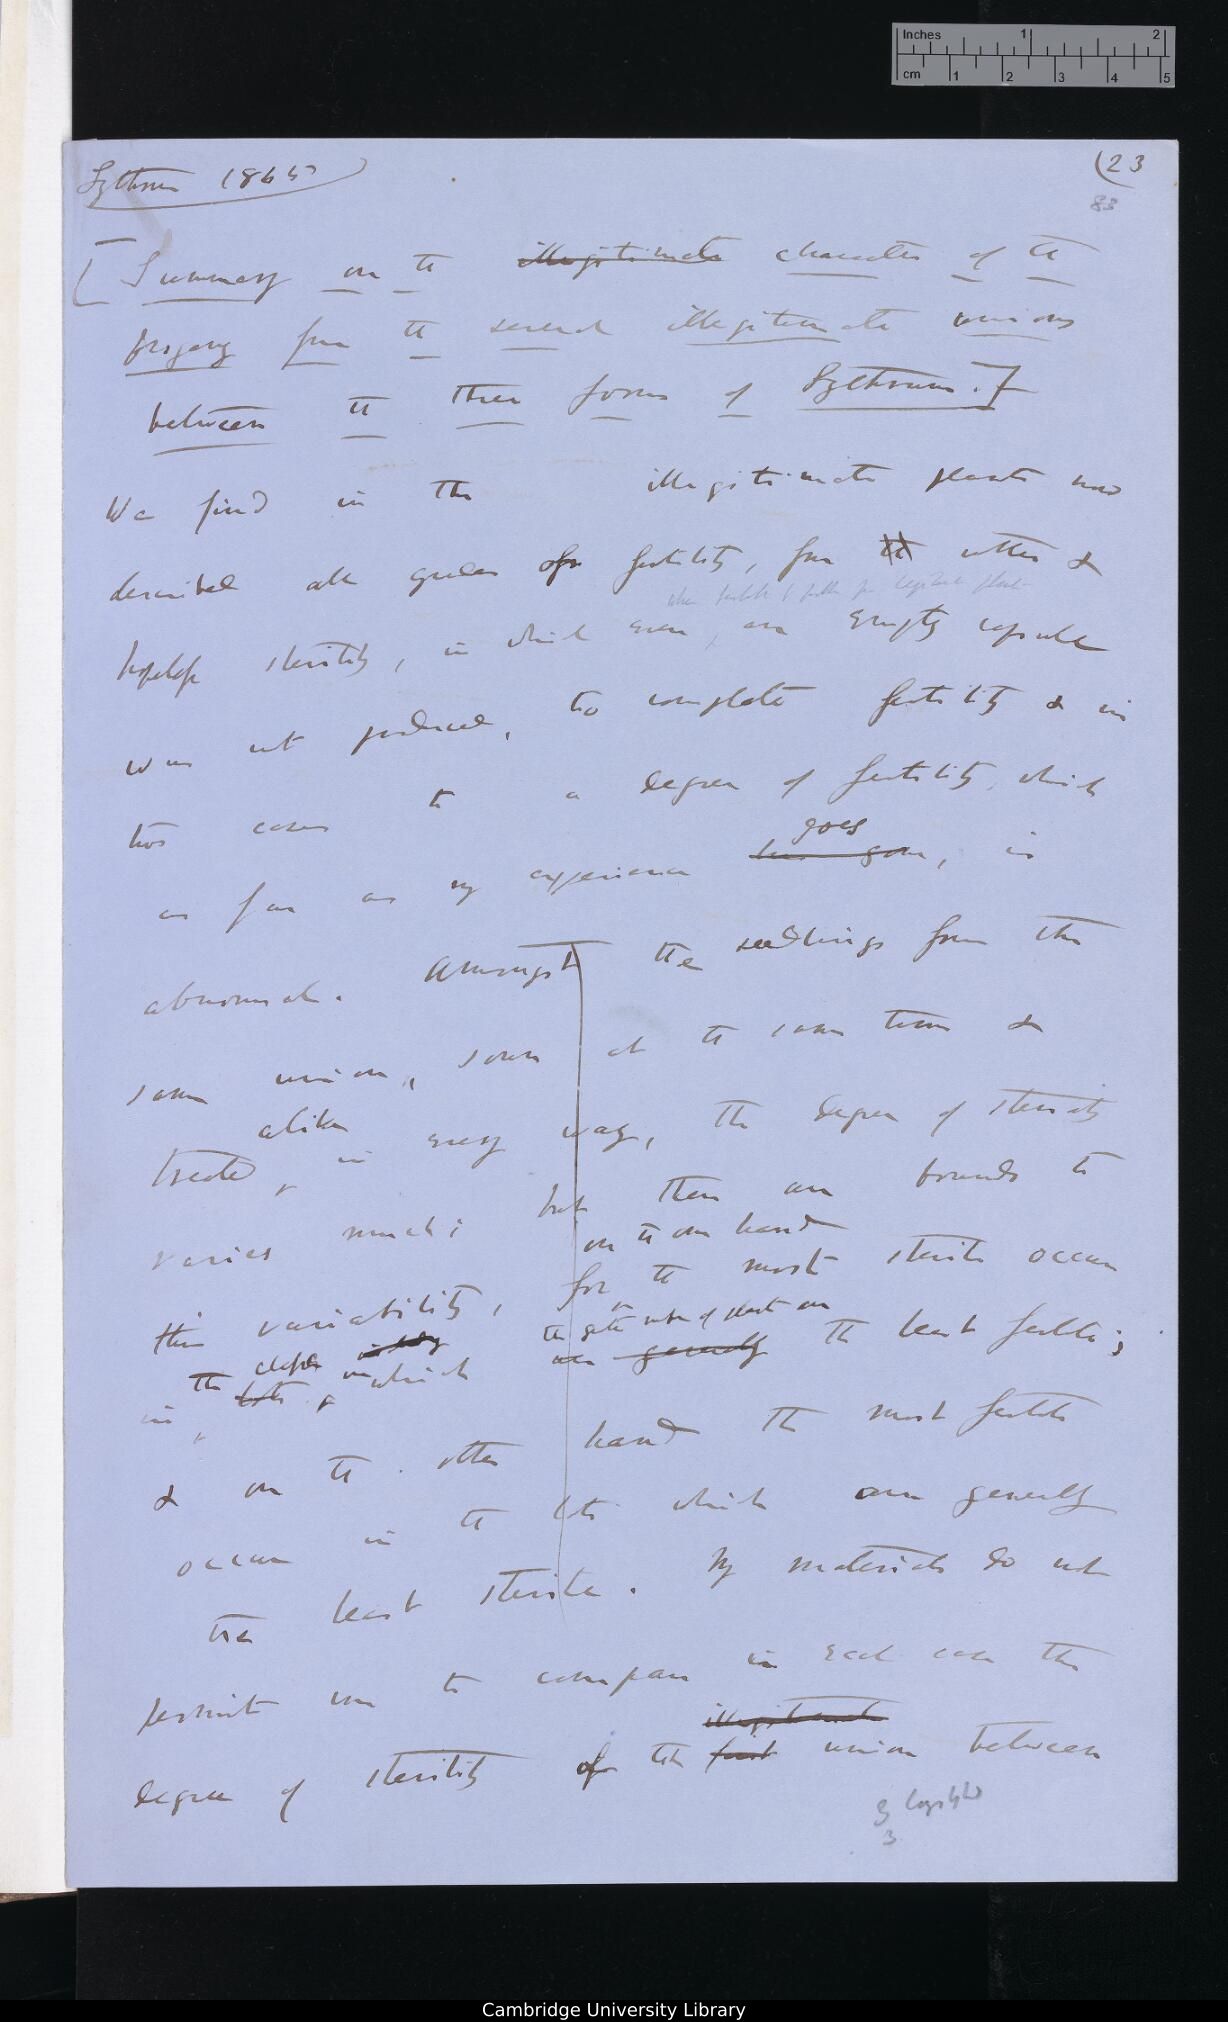 Inches 1 2
cm 1 2 3 4 5
Lythrum 1865
(23
83
[Summary on the illegitimate character of the
progeny from the several illegitimate unions
between the three forms of Lythrum.]
We find in the illegitimate plants now
described all grades of fertility, from the utter &
when fertile & pollen from legitimate plant
hopeless sterility, in which even an empty capsule
was not produced, to complete fertility & in
two cases to a degree of fertility, which
goes
as far as my experience has gone, is
abnormal. Amongst the seedlings from the
same union, sown at the same time &
alike
treated in every way, the degree of sterility
varies much; but there are bounds to
on the one hand
this variability, for the most sterile occur
the classes the whole of plants are
in lots in which are generally the least fertile;
& on the other hand the most fertile
occur in the lots which are generally
the least sterile. My materials do not
permit me to compare in each case the
illegitimate
degree of sterility of the first union between
3
Cambridge University Library